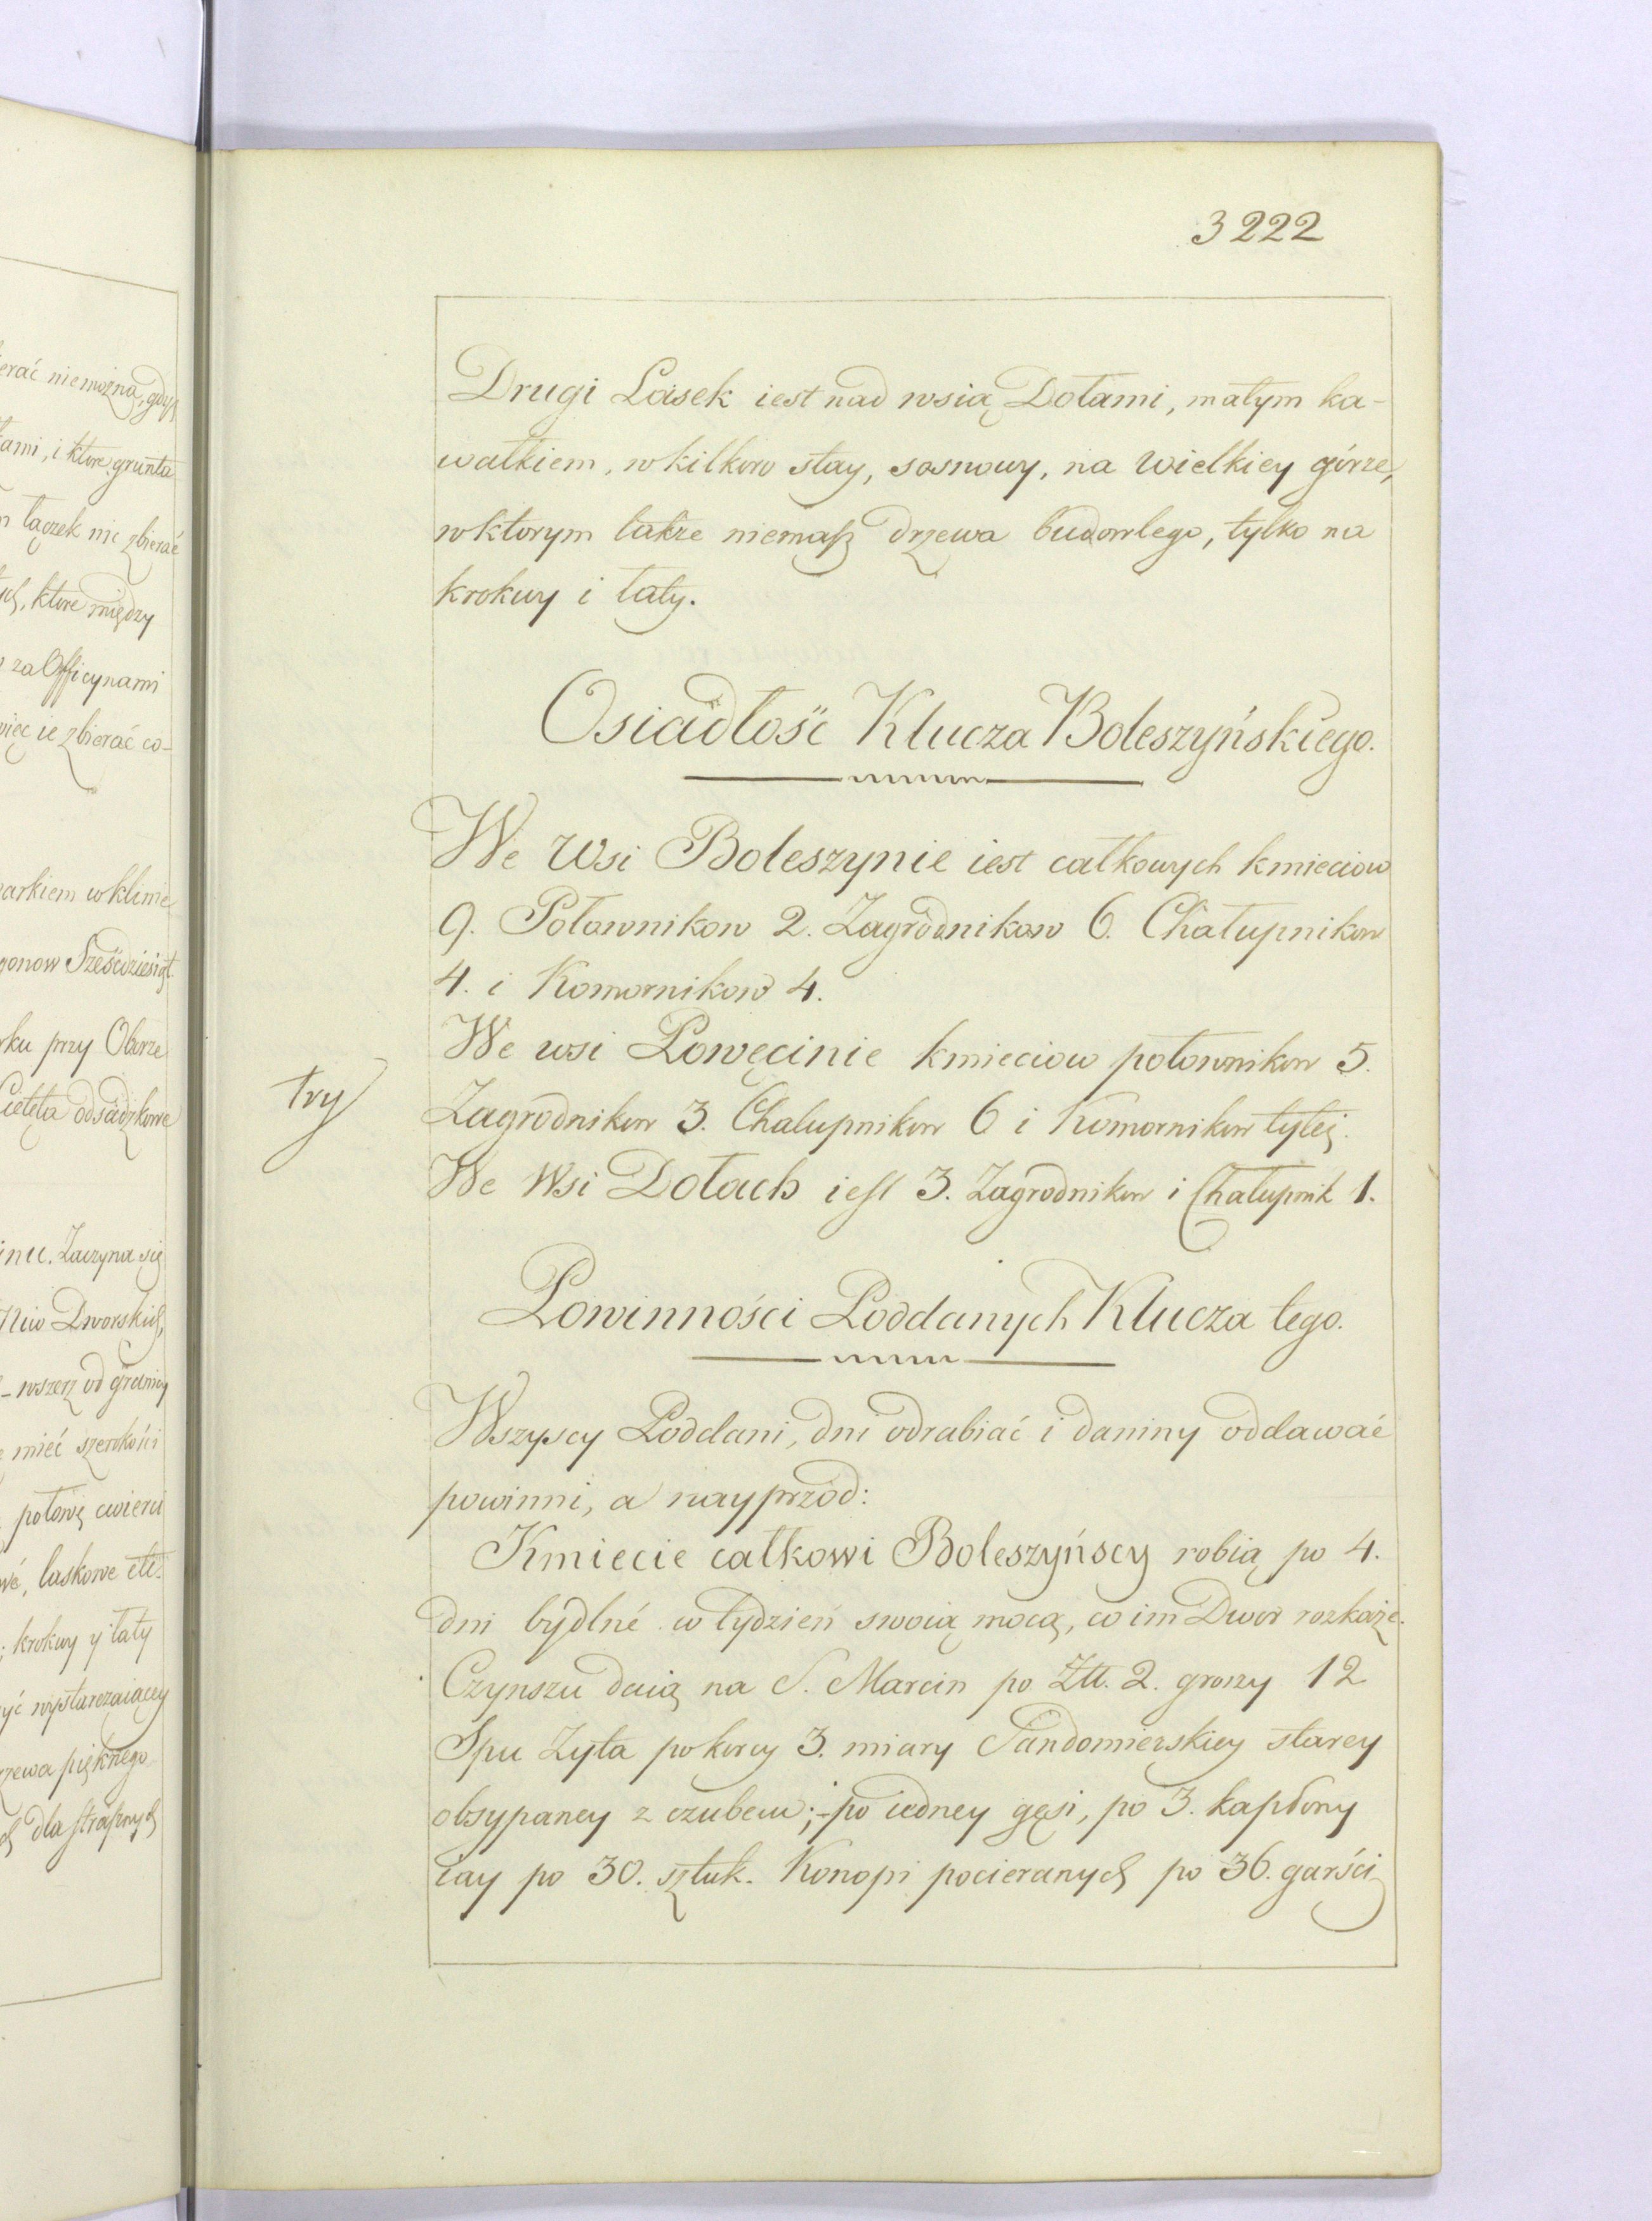 3222
Drugi Lasek iest nad wsią Dołami, małym ka-
wałkiem, w kilkoro stay, sosnowy, na wielkiey górze,
w ktorym także niemasz drzewa budowlego, tylko na
krokwy i łaty.
Osiadłość Klucza Boleszyńskiego.
We Wsi Boleszynie iest całkowych kmieciow
9. Połownikow 2. Zagrodnikow 6. Chałupnikow
4. i Komornikow 4.
We wsi Powęcinie kmieciow połownikow 5.
try
Zagrodnikow 3. Chalupnikow 6 i Komornikow tyleż.
We Wsi Dołach iest 3. Zagrodnikow i Chałupnik 1.
Powinności Poddanych Klucza tego.
Wszyscy Poddani, dni odrabiać i daniny oddawać
powinni, a nayprzod:
Kmiecie całkowi Boleszyńscy robią po 4.
dni bydlné w tydzień swoią mocą, co im Dwor rozkaże.
Czynszu daią na S. Marcin po Ztt. 2. groszy 12
Spu Zyta po korcy 3. miary Sandomierskiey starey
obsypaney z czubem; - po iedney gęsi, po 3. kapłony
iay po 30. sztuk. Konopi pocieranych po 36. garści
erać niemożna, gdyż
łami, i ktore grunta
łączek nie zbierać
ktore między
za Officynami
więc ie zbierać co-
Sześćdziesiąt
przy Oborze
Cielęta odsadzkowe
Zaczyna się
Niw Dworskich,
- wszerz od granicy
mieć szerokości
połowę cwierci
laskowe etc.
krokwy y łaty
wystarczaiący
pięknego
dla strasznych